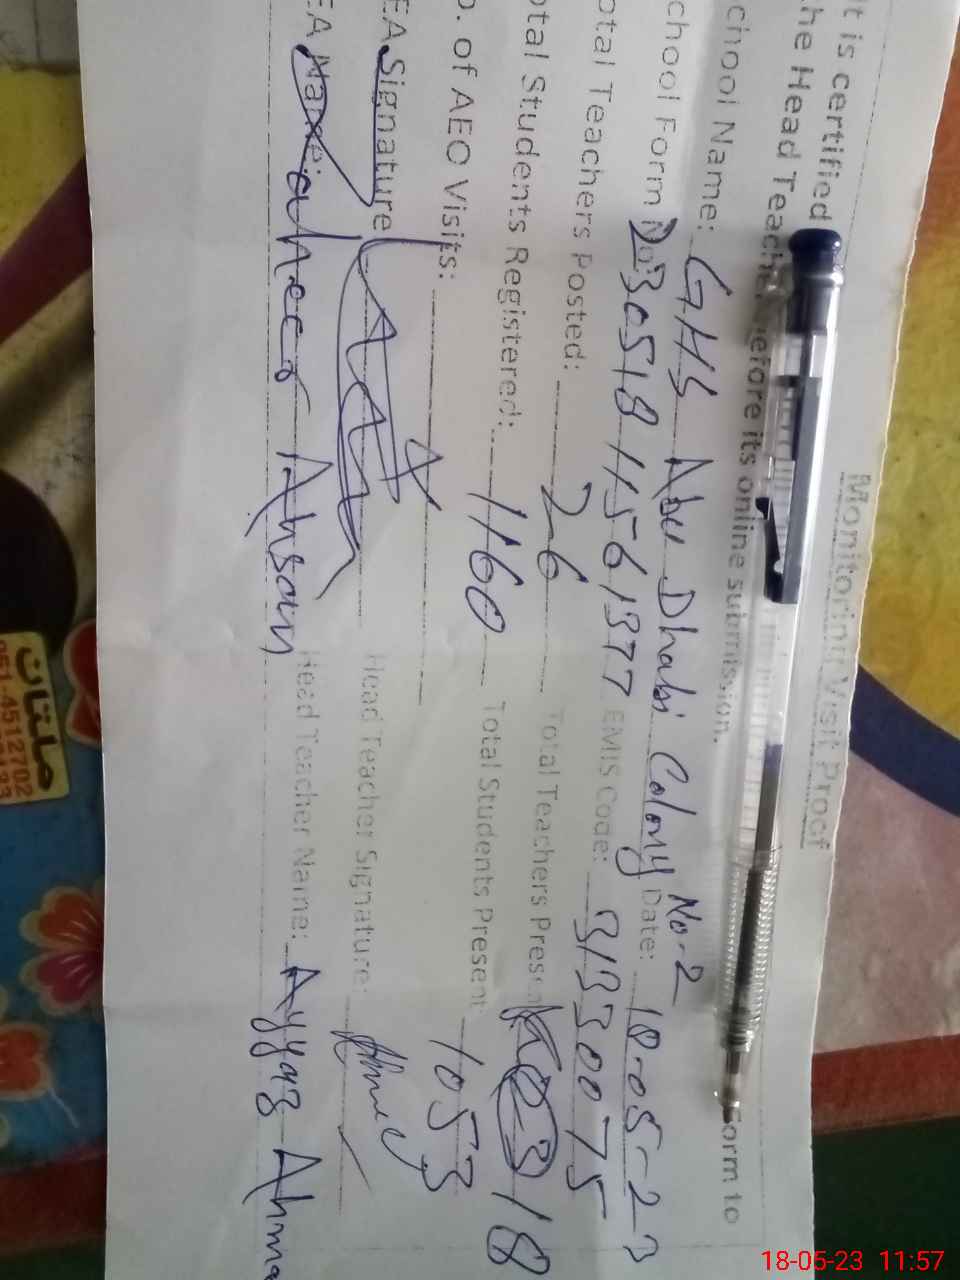 Monitoring Visit Proof
It is certified
the Head Teacher before its online submission. form to
School Name: GHS Abu Dhabi Colony No-2 Date: 18-05-23
School Form No: 23051811561377 EMIS Code: 31330075
Total Teachers Posted: 26 Total Teachers Present 18
Total Students Registered: 1160 Total Students Present 1053
No. of AEO Visits:
EA Signature Head Teacher Signature:
EA Name: Ahsan Head Teacher Name: Ayyaz Ahma
ملتان
061-4512702
18-05-23 11:57